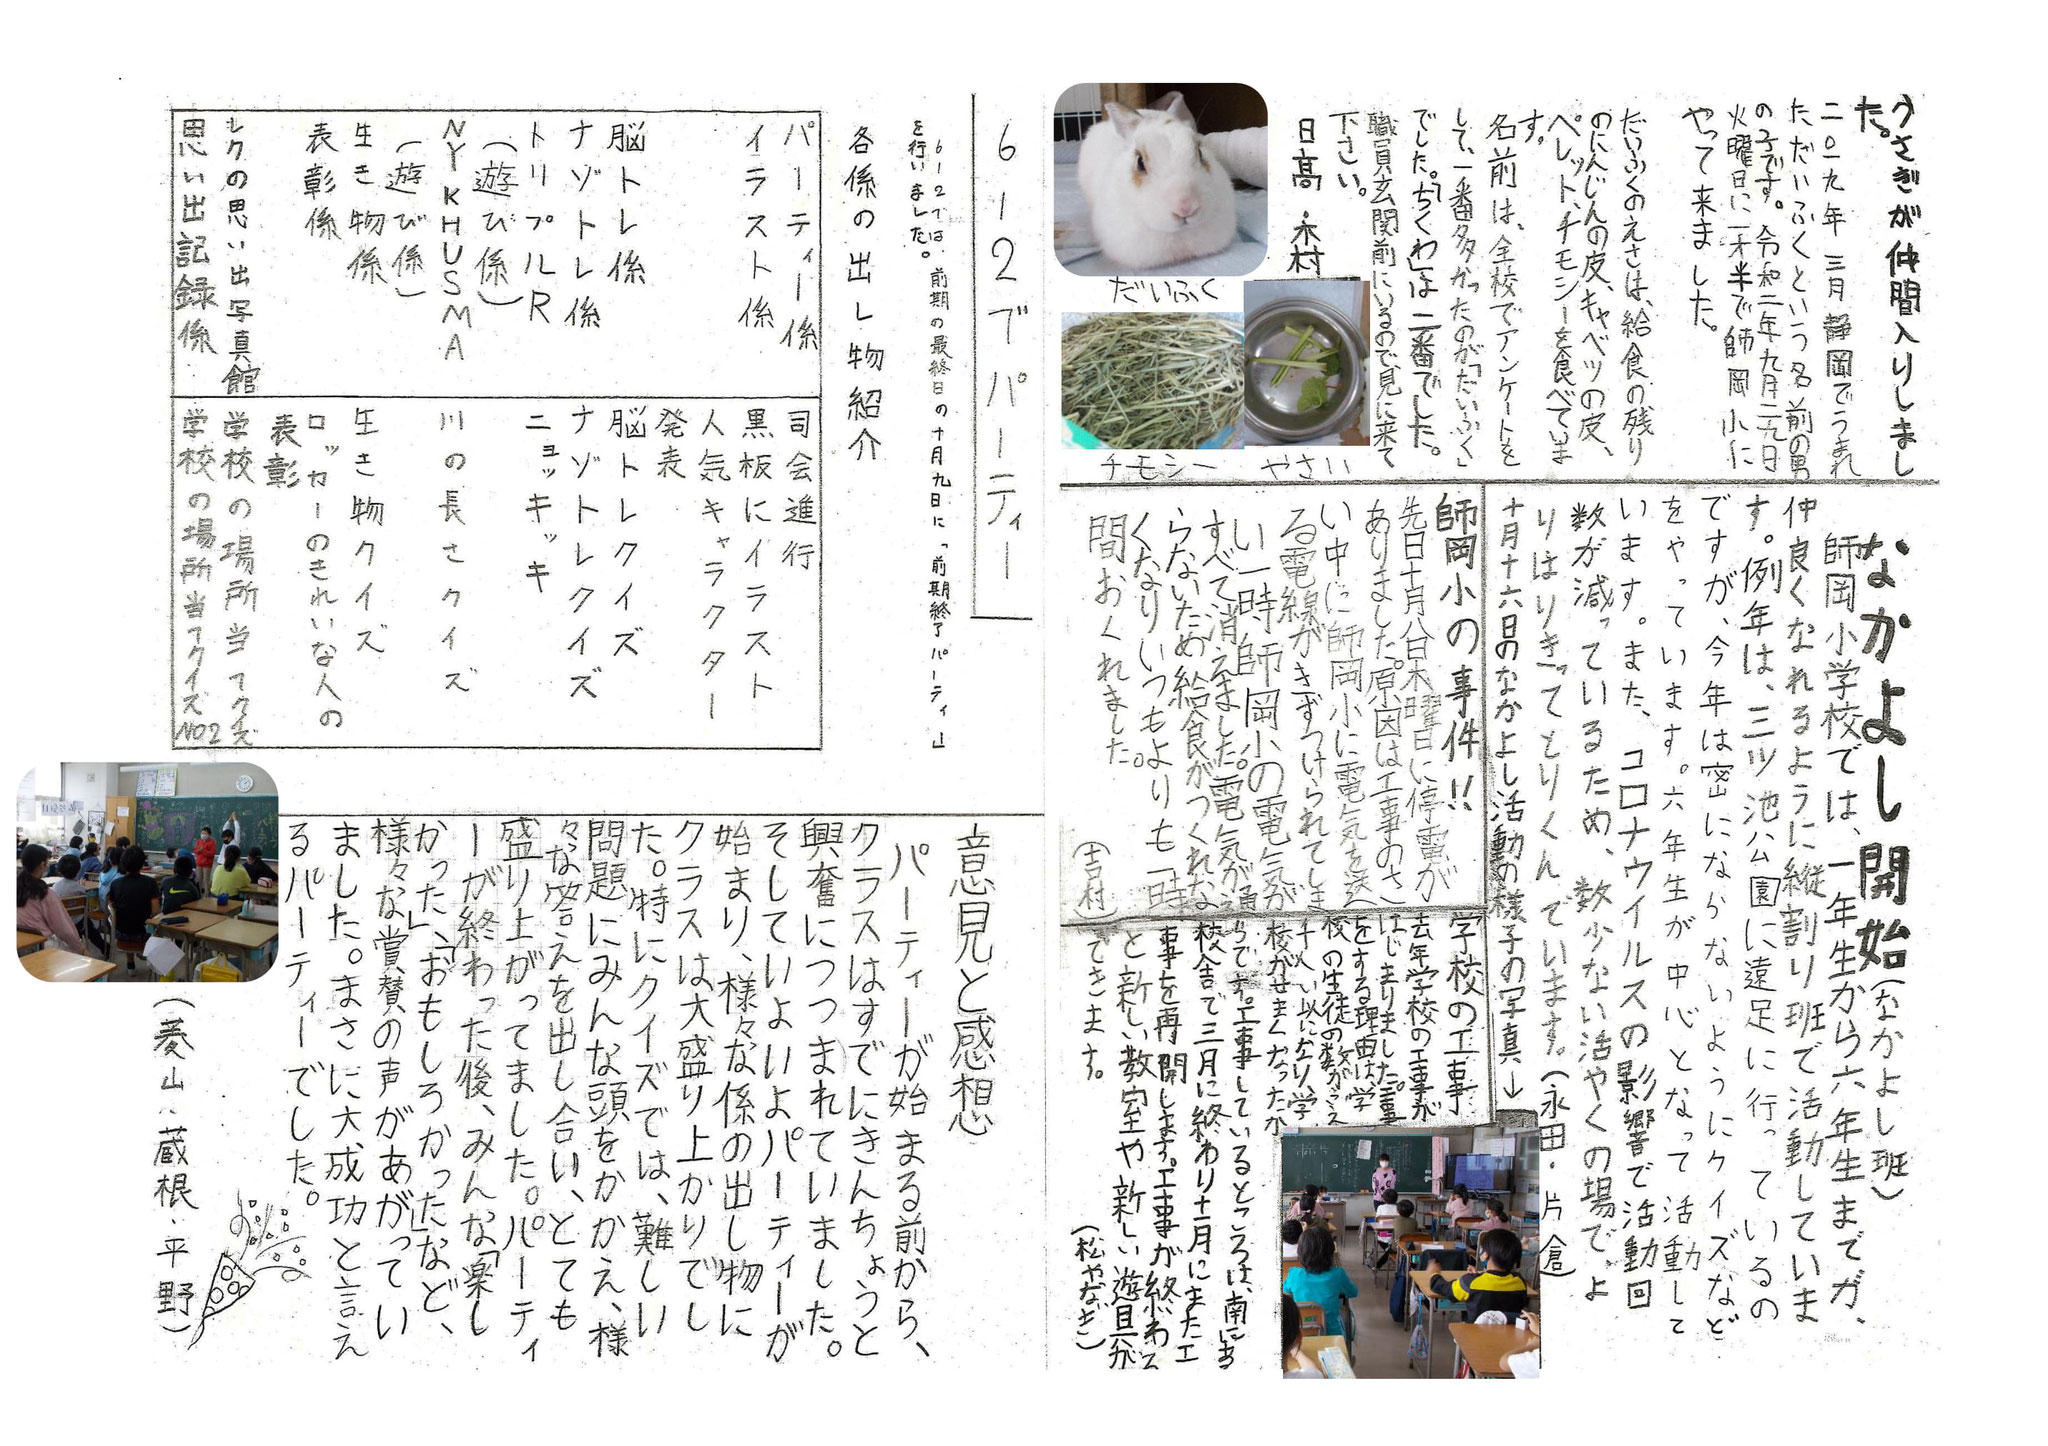 うさぎが仲間入りしまし
た。
二〇一九年 三月 静岡でうまれ
ただいふくという名前の男
の子です。令和二年九月二九日
火曜日に一才半で師岡小に
やって来ました。
だいふくのえさは、給食の残り
のにんじんの皮、キャベツの皮、
ペレット、チモシーを食べていま
す。
名前は、全校でアンケートを
して、一番多かったのが「だいふく」
でした。「ちくわ」は二番でした。
職員玄関前にいるので見に来て
下さい。
日高・木村
だいふく
チモシー やさい
なかよし開始(なかよし班)
師岡小学校では、一年生から六年生までが、
仲良くなれるように縦割り班で活動していま
す。例年は、三ツ池公園に遠足に行っているの
ですが、今年は密にならないようにクイズなど
をやっています。六年生が中心となって活動して
います。また、コロナウイルスの影響で活動回
数が減っているため、数少ない活やくの場で、よ
りはりきってとりくんでいます。(永田・片倉)
十月十六日のなかよし活動の様子の写真→
師岡小の事件!!
先日十月八日木曜日に停電が
ありました。原因は工事のさ
い中に師岡小に電気を送
る電線がきずつけられてしま
い一時師岡小の電気が
すべて消えました。電気が通
らないため給食がつくれな
くなりいつもよりも一時
間おくれました。
(吉村)
学校の工事
去年学校の工事が
はじまりました。工事
をする理由は学
校の生徒の数がふえ
千人い以になり、学
校がせまくなったか
らです。工事しているところは、南にある
校舎で三月に終わり十一月にまた工
事を再開します。工事が終わる
と新しい教室や新しい遊具が
できます。
(松やなぎ)
6-2でパーティー
6-2では、前期の最終日の十月九日に「前期終了パーティー」
を行いました。
各係の出し物紹介
パーティー係 司会進行
イラスト係 黒板にイラスト
人気キャラクター
発表
脳トレ係 脳トレクイズ
ナゾトレ係 ナゾトレクイズ
トリプルR ニョッキッキ
(遊び係)
NYKHUSMA 川の長さクイズ
(遊び係)
生き物係 生き物クイズ
表彰係 ロッカーのきれいな人の
表彰
レクの思い出写真館 学校の場所当てクイズ
思い出記録係 学校の場所当てクイズNO2
意見と感想
パーティーが始まる前から、
クラスはすでにきんちょうと
興奮につつまれていました。
そしていよいよパーティーが
始まり、様々な係の出し物に
クラスは大盛り上かりでし
た。特にクイズでは、難しい
問題にみんな頭をかかえ、様
々な答えを出し合い、とても
盛り上がってました。パーティ
ーが終わった後、みんな「楽し
かった」「おもしろかった」など、
様々な賞賛の声があがってい
ました。まさに大成功と言え
るパーティーでした。
(菱山・蔵根・平野)